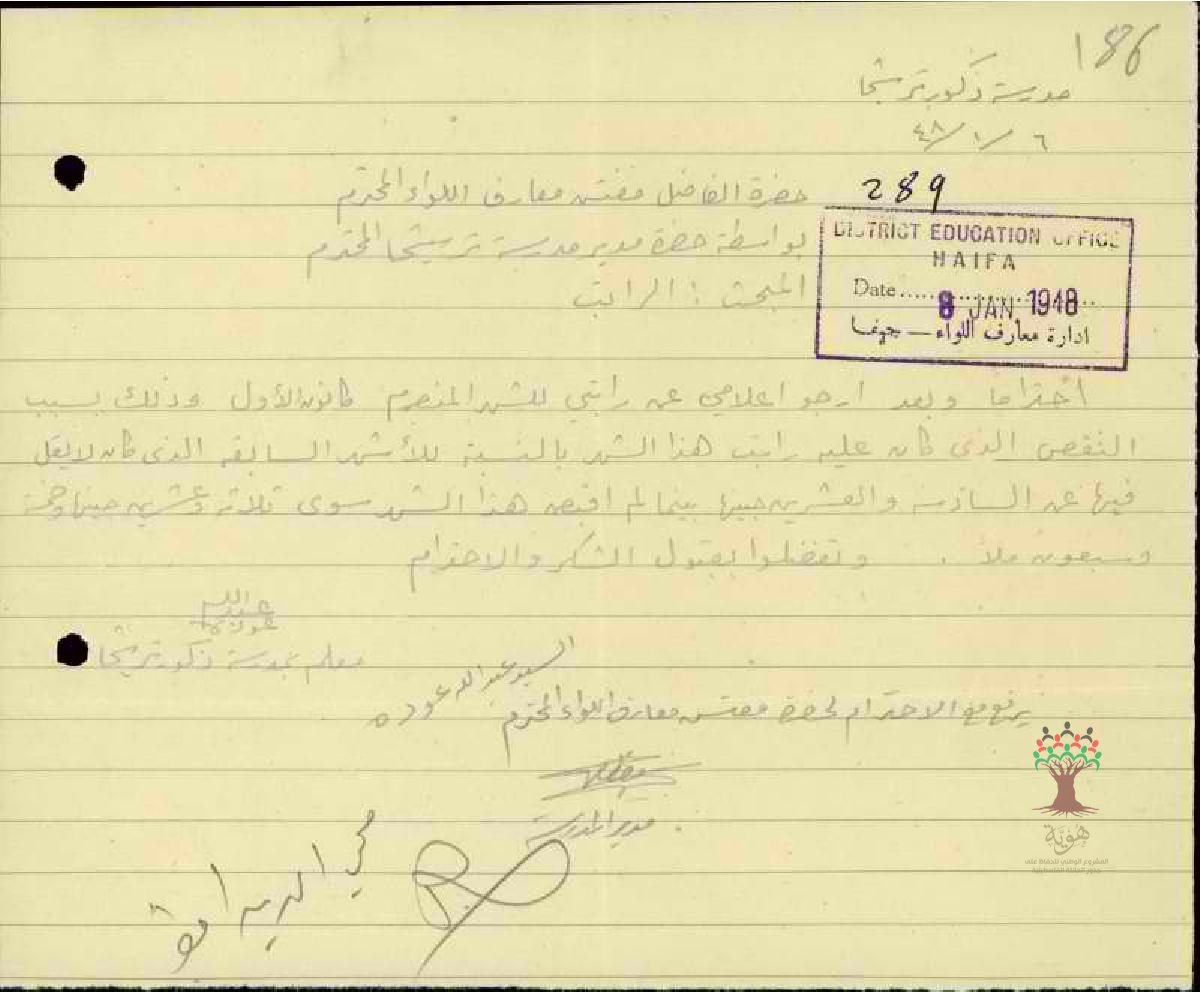 186
مدرسة ذكور ترشيحا
٦/١/٤٨
289
حضرة الفاضل مفتش معارف اللواء المحترم
بواسطة حضرة مدير مدرسة ترشيحا المحترم
المبحث : الراتب
DISTRICT EDUCATION OFFICE
HAIFA
Date 8 JAN 1948
ادارة معارف اللواء — حيفا
احتراما وبعد ارجو اعلامي عن راتبي للشهر المنصرم كانون الأول وذلك بسبب
النقص الذي كان عليه راتب هذا الشهر بالنسبة للأشهر السابقة الذي كان لا يقل
فيها عن السادسة والعشرين جنيها بينما لم اقبض هذا الشهر سوى ثلاثة وعشرين جنيها وخمسة
وسبعون ملاً . وتفضلوا بقبول الشكر والاحترام
عبدالله
عودة
معلم بمدرسة ذكور ترشيحا
السيد عبدالله عوده
يرفع مع الاحترام لحضرة مفتش معارف اللواء المحترم
مدير المدرسة
محي الدين
هوية
المشروع الوطني للحفاظ على